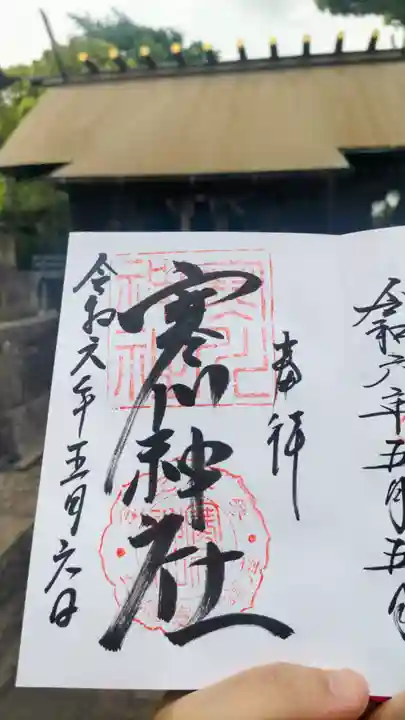 令和元年五月五日
奉拝
寒川神社
令和元年五月六日